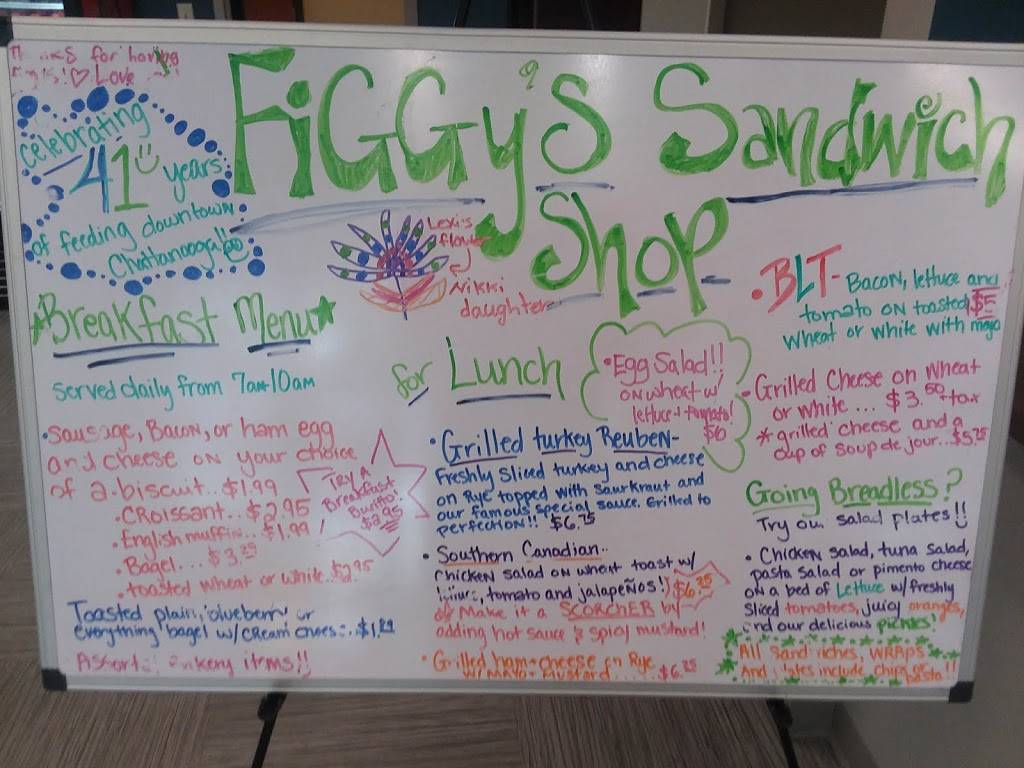 for having
Love
Celebrating
41 years
of feeding downtown
Chattanooga!!
FiGGy's Sandwich
Shop
Lexi's
flower
Nikki
daughter
Breakfast Menu
served daily from 7am-10am
•Sausage, Bacon, or ham egg
and cheese on your choice
of a•biscuit..$1.99
•CRoissant..$2.95
•English muffin..$1.99
•Bagel...$3.25
•toasted wheat or white.$2.95
Try A
Breakfast
Burito!
$2.95
Toasted plain, blueberry or
everything bagel w/cream chees...$1.89
items!!
for Lunch
•Egg Salad!!
on wheat w/
lettuce + tomato!
$6
•Grilled turkey Reuben-
Freshly Sliced turkey and cheese
on Rye topped with Saurkraut and
our famous special sauce. Grilled to
perfection!! $6.75
•Southern Canadian..
Chicken salad on wheat toast w/
tomato and jalapeños!) $6.25
Make it a SCORCHER by
adding hot sauce & spicy mustard!
•Grilled ham+cheese on Rye
w/mayo+mustard....$6.25
•BLT- Bacon, lettuce and
tomato on toasted $5
wheat or white with mayo
-Grilled Cheese on wheat
or white... $3.50+tax
*grilled cheese and a
cup of soup de jour...$5.75
Going Breadless?
Try our salad plates!!
•Chicken salad, tuna salad,
pasta salad or pimento cheese
on a bed of Lettuce w/freshly
sliced tomatoes, juicy oranges,
and our delicious pickles!
All Sandwiches, WRAPs
And plates include chips or
pasta!!